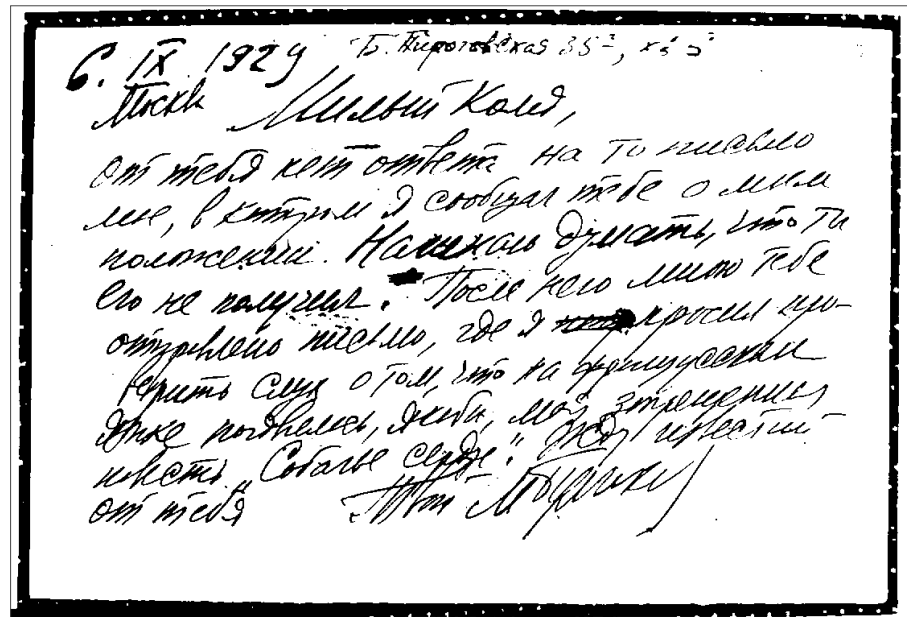 6. IX 1929 Б. Пироговская 35а, кв 6
Москва Милый Коля,
от тебя нет ответа на то письмо
мое, в котором я сообщал тебе о моем
положении. Начинаю думать, что ты
его не получил. После него мною тебе
отправлено письмо, где я просил про-
верить слух о том, что на французском
языке появилась, якобы, моя запрещенная
повесть „Собачье сердце“. Жду известий
от тебя Твой Михаил